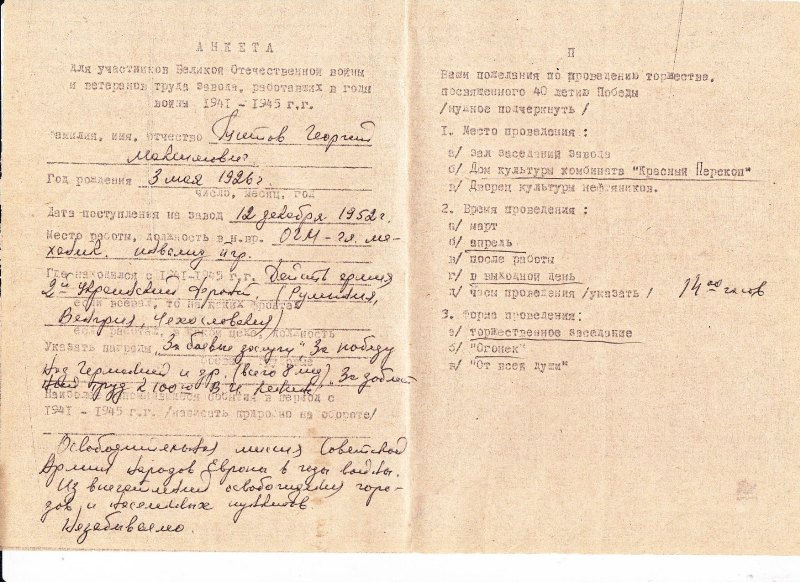 АНКЕТА
для участников Великой Отечественной войны
и ветеранов труда завода, работавших в годы
войны 1941 - 1945 г.г.
Фамилия, имя, отчество Георгий
Максимович
Год рождения 3 мая 1926 г
число, месяц, год
Дата поступления на завод 12 декабря 1952 г.
Место работы, должность в н.вр. ОГМ - гл. ме-
ханик. инвалид II гр.
Где находился с 1941-1945 г.г. Действ армия
2й Украинский фронт (Румыния,
если воевал, то на каких фронтах
Венгрия, Чехословакия)
если работал, в каком цехе, должность
Указать награды "За боевые заслуги" За победу
над Германией и др. (всего 8 мед) "За доблест
ный труд 100 ю В.И. Ленина
Наиболее запомнившиеся события в период с
1941 - 1945 г.г. /написать подробно на обороте/
Освободительная миссия Советской
Армии народов Европы в годы войны.
Из впечатлений освобождения горо-
дов и населенных пунктов
Незабываемо.
П
Ваши пожелания по проведению торжества,
посвященного 40 летию Победы
/нужное подчеркнуть /
1. Место проведения :
а/ зал заседаний завода
б/ Дом культуры комбината "Красный Перекоп"
в/ Дворец культуры нефтяников.
2. Время проведения :
а/ март
б/ апрель
в/ после работы
г/ в выходной день
д/ часы проведения /указать / 14 00 часов
3. Форма проведения:
а/ торжественное заседание
б/ "Огонек"
в/ "От всей души"